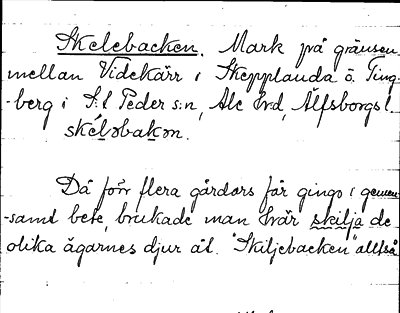 Skelebacken. Mark på gränsen
mellan Videkärr i Skepplanda o. Ting-
-berg i S:t Peder s:n, Ale hrd, Älfsborgs l.
skélǝbakǝn.
Då förr flera gårdars får gingo i gemen-
-samt bete, brukade man här skilja de
olika ägarnes djur åt. "Skiljebacken" alltså